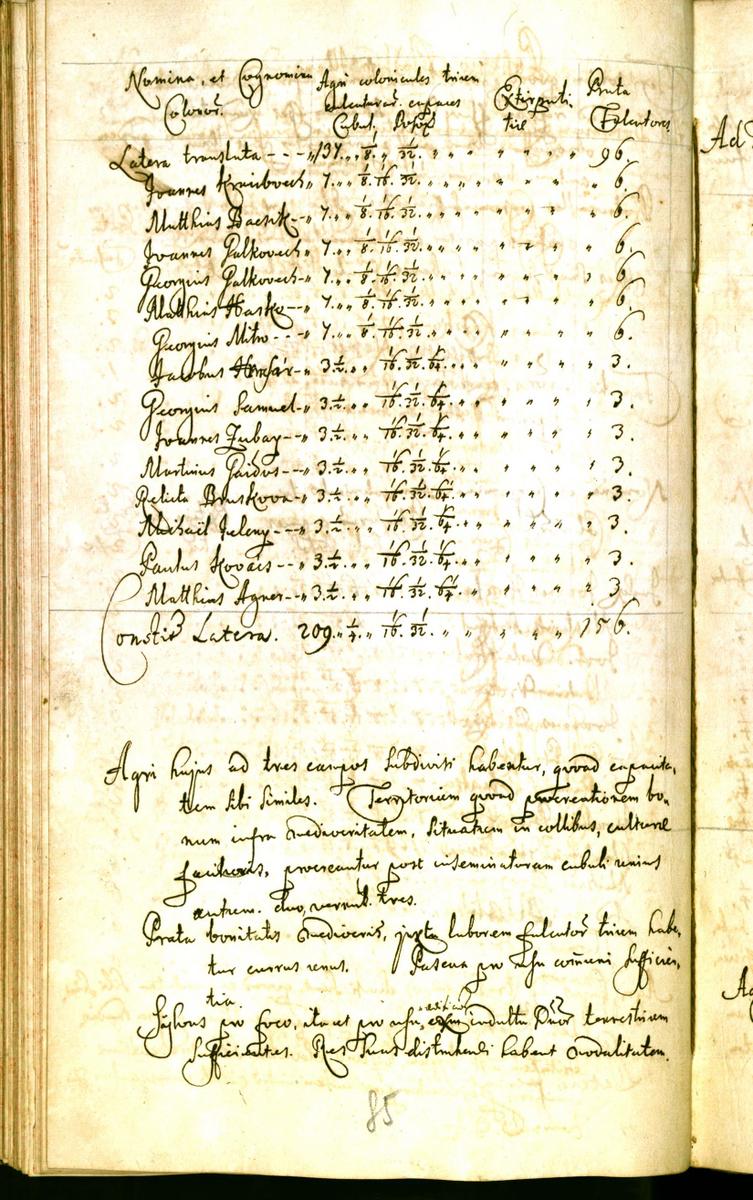 Nomina, et Cognomina Agri colonicales trium Extirpati- Prata
Colonor. culturar. capaces tiae Falcator.
Cubul. Poson.
Latera translata - - - " 137. " " 1/8. " 1/32. " " " " " " " 96.
Joannes Kraicbovech " 7. " " 1/8. 1/16. 1/32. " " " " " " " 6.
Matthias Bacsik - " 7. " " 1/8. 1/16. 1/32. " " " " " " " 6.
Joannes Palkovech " 7. " " 1/8. 1/16. 1/32. " " " " " " " 6.
Georgius Palkovech " 7. " " 1/8. 1/16. 1/32. " " " " " " " 6.
Matthias Hasko - - " 7. " " 1/8. 1/16. 1/32. " " " " " " " 6.
Georgius Mitro - - - " 7. " " 1/8. 1/16. 1/32. " " " " " " 6.
Jacobus - " 3. 1/2. " " 1/16. 1/32. 1/64. " " " " " " 3.
Georgius Samuel - " 3. 1/2. " " 1/16. 1/32. 1/64. " " " " " " 3.
Joannes Zubay - - " 3. 1/2. " " 1/16. 1/32. 1/64. " " " " " " 3.
Martinus Gaidos - - " 3. 1/2. " " 1/16. 1/32. 1/64. " " " " " " 3.
Relicta Bruskova - " 3. 1/2. " " 1/16. 1/32. 1/64. " " " " " " 3.
Michaël Jeleny - - - " 3. 1/2. " " 1/16. 1/32. 1/64. " " " " " " 3.
Paulus Kovács - - " 3. 1/2. " " 1/16. 1/32. 1/64. " " " " " " 3.
Matthias Agner - - " 3. 1/2. " " 1/16. 1/32. 1/64. " " " " " " 3
Latera. 209. " 1/4. " 1/16. 1/32. " " " " " " 156.
Agri hujus ad tres campos subdivisi habentur, quoad capacita-
tem sibi similes. Territorium quoad procreationem bo-
num infra mediocritatem, situatum in collibus, culturae
facilioris, procreantur post inseminaturam cubuli unius
autem. duo, vernal. tres.
Prata bonitatis mediocris, juxta laborem falcator trium habe-
tur currus unus. Pascua pro usu com̄uni sufficien-
tia.
Sylvas pro foco, ita et pro usu, aedificior ex indultu Dnor terrestrium
sufficientes. Res suas distrahendi habent modalitatem.
85
Ad
Ag